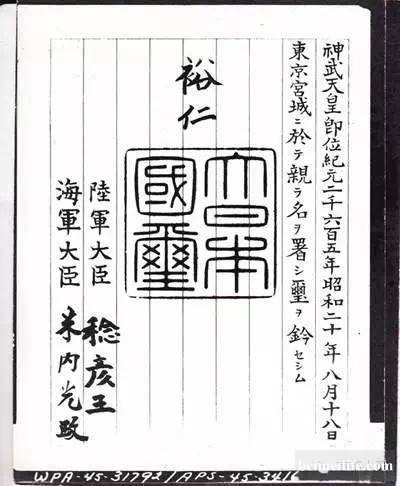 神武天皇卽位紀元二千六百五年昭和二十年八月十八日
東京宮城ニ於テ親ラ名ヲ署シ璽ヲ鈐セシム
裕仁
大日本
國璽
陸軍大臣 稔彦王
海軍大臣 米内光政
WPA-45-31792/APS-45-3416
beimeilife.com